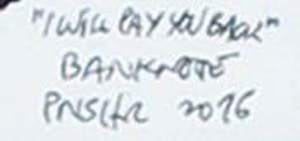 "I WILL PAY YOU BACK"
BANKNOTE
2016